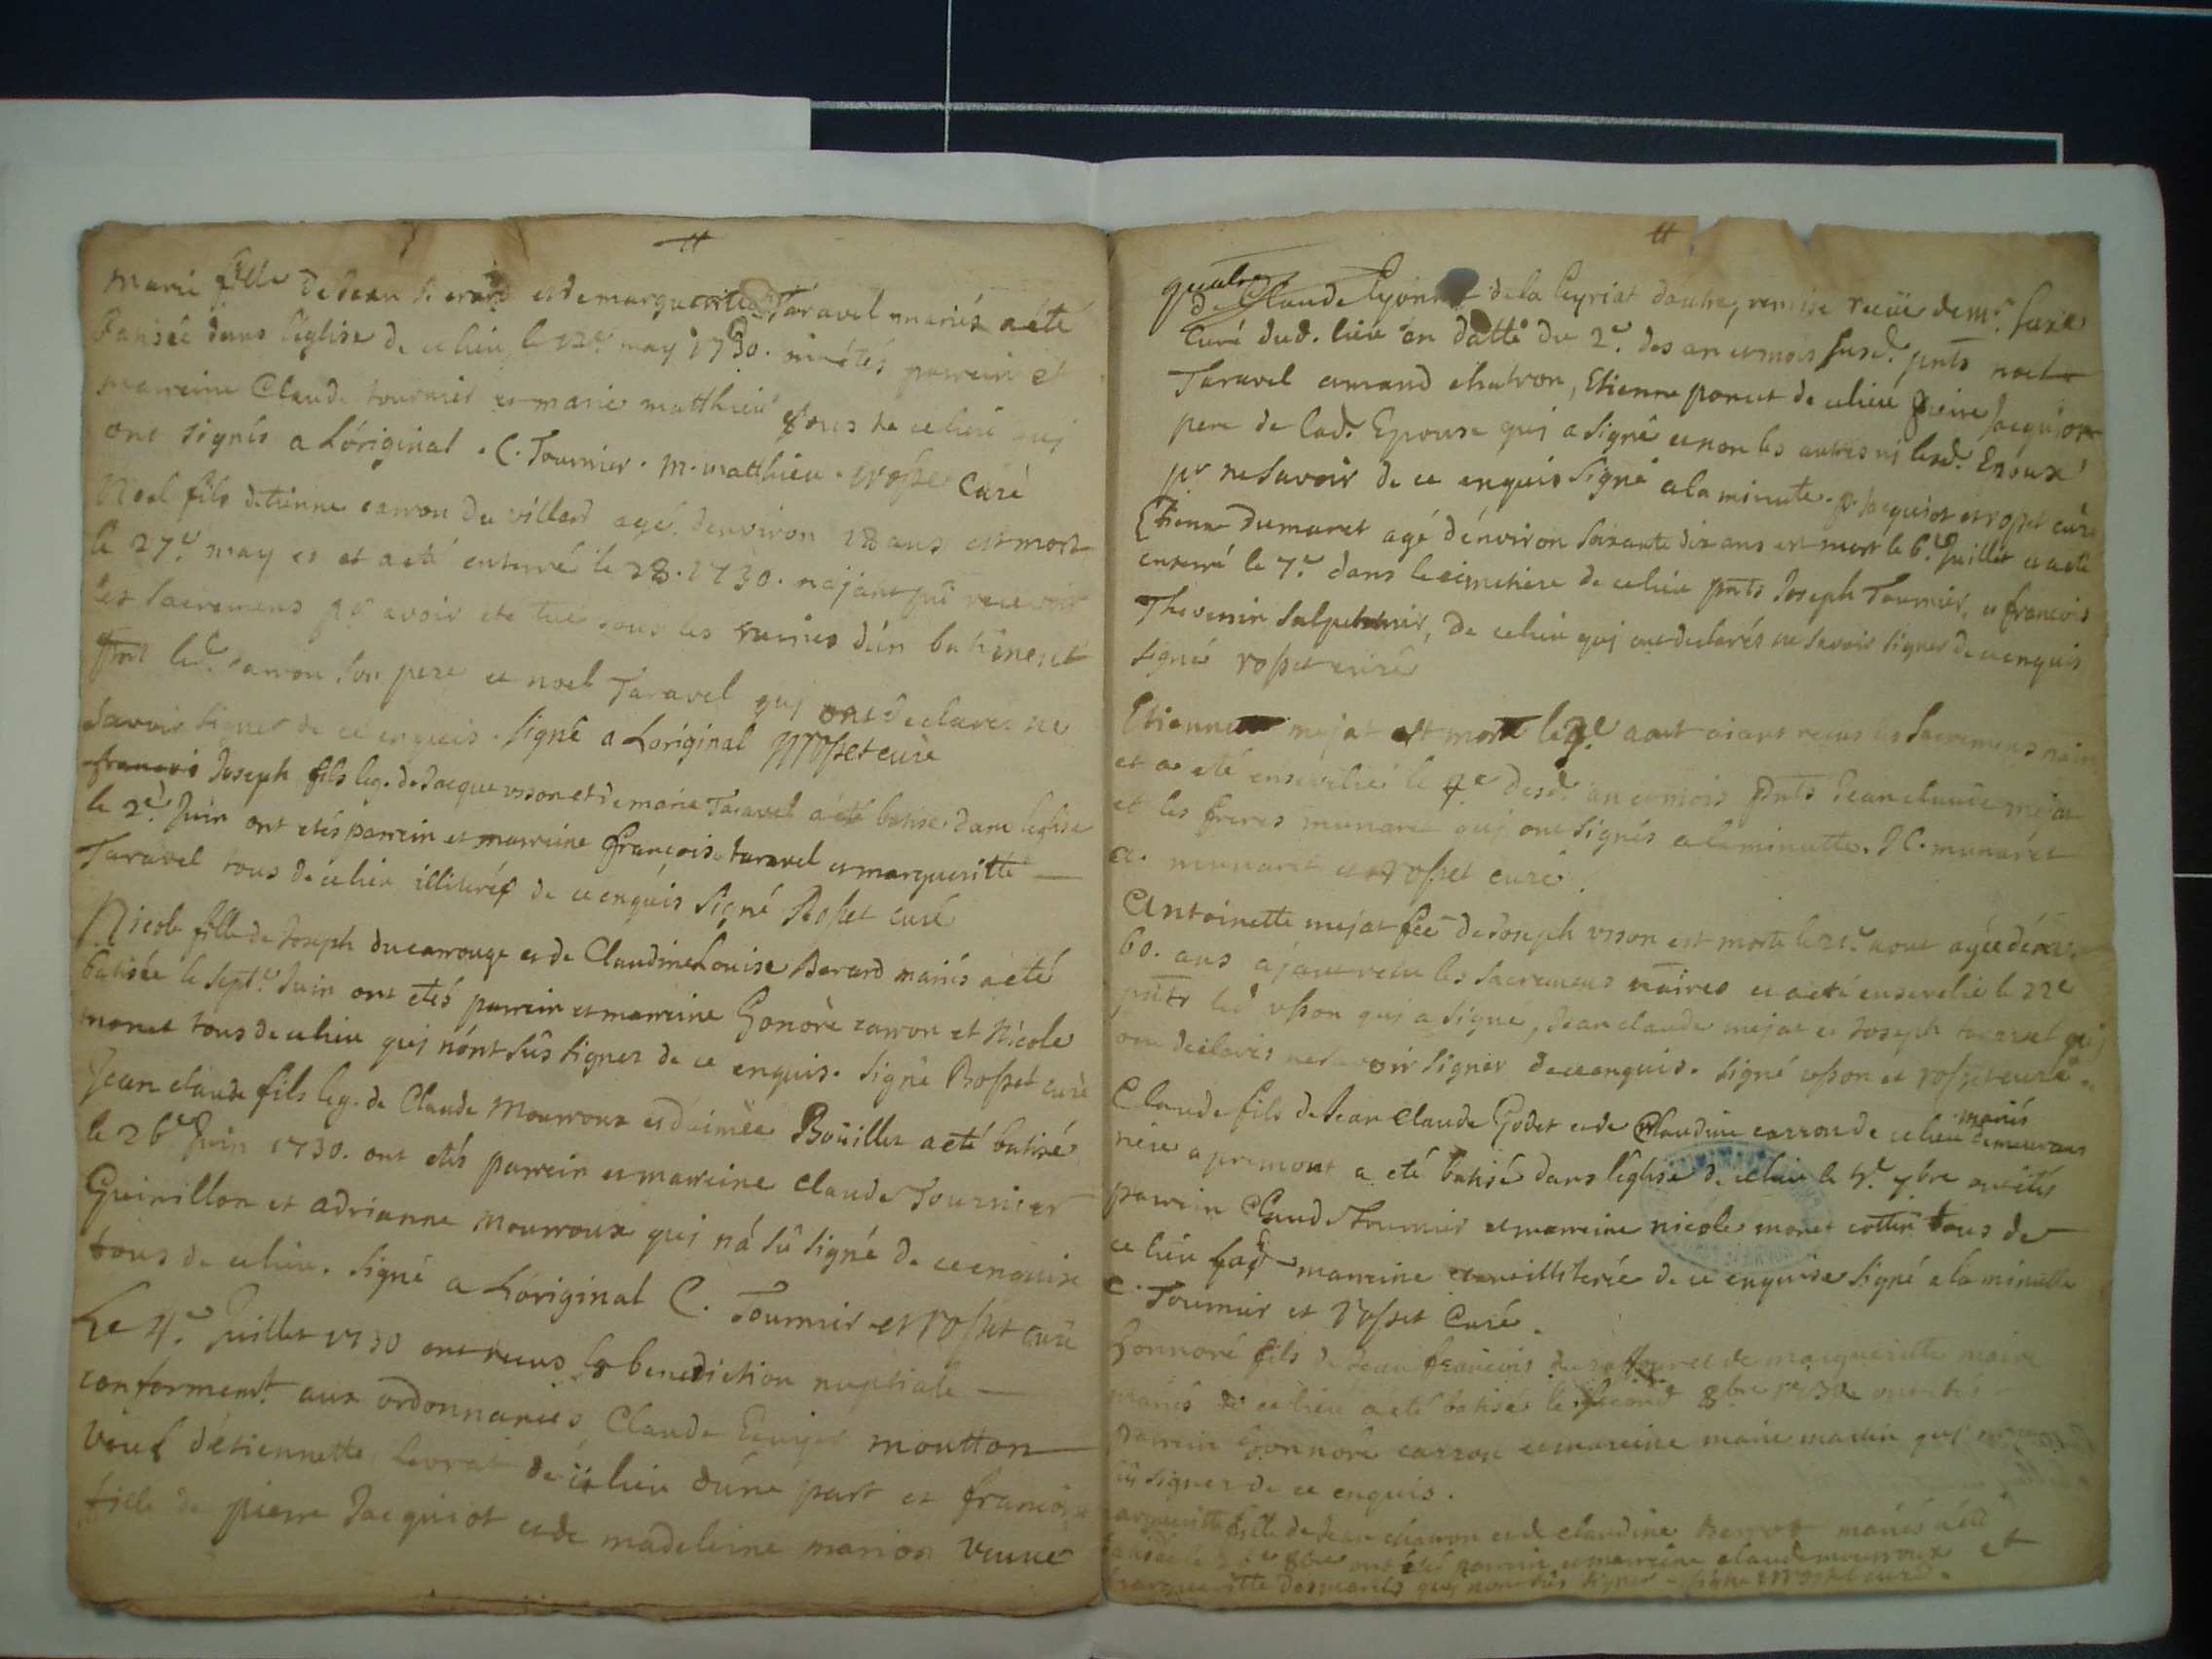 marie fille de Jean Berard et de marguerite Taravel mariés a été
batisée dans l'église de ce lieu le 12e. may 1730. ont étés parrein et
marreine Claude tournier et marie matthieu tous de ce lieu qui
ont signés a L'original. C. Tournier. m. matthieu. Rosset Curé
Noel fils detienne carron du villard agé denviron 18 ans est mort
le 27e. may et a eté enterré le 28. 1730. n'ajant pû recevoir
les Sacremens pr. avoir eté tué sous les ruines dún batiment
pnt led. carron son pere et noel Taravel qui ont declarés ne
savoir signer de ce enquis. signé a Loriginal Rosset curé
françois Joseph fils leg. de Jacque usson et de marie Taravel a eté batisé dans léglise
le 2e. Juin ont etés parrein et marreine françois taravel et margueritte
Taravel tous de ce lieu illiterés de ce enquis signé Rosset curé
Nicole fille de Joseph ducarrouge et de Claudine Louise Berard mariés a eté
batisée le Sept.e Juin ont etés parrein et marreine honoré carron et Nicole
monet tous de ce lieu qui nónt sûs signer de ce enquis. signé Rosset curé
Jean claude fils leg. de Claude Mourroux et d'aimée Boüillet a eté batisé
le 26e Juin 1730. ont etés parrein et marreine claude Tournier
Guinillon et adrianne mourroux qui n'á sû signé de ce enquise
tous de ce lieu. signé a Lóriginal C. Tournier et Rosset curé
Le 4e. Juillet 1730 ont recus la benediction nuptiale
conforment. aux ordonnances Claude moutton
veuf détiennette Levrat de ce lieu dúne part et françoise
fille de pierre Jacquiot et de madeleine marion veuve
de Claude Lyonnet de la leyriat dautre, remise recüe de mr. Saxe
Curé dud. lieu en datte du 2e. des an et mois susd. pnts noel
Taravel amand chatron, Etienne ponut de ce lieu pierre Jacquiot
pere de lad. Epouse qui a signé et non les autres ni lesd. Epoux
pr ne savoir de ce enquis signé a la minute. p. Jacquiot et rosset curé
Etienne Dumaret agé dénviron soixante dix ans est mort le 6e. Juillet et a eté
enterré le 7e. dans le cimetiere de ce lieu pnts Joseph Tournier, et francois
Thevenin salpetrier, de ce lieu qui ont declarés ne savoir signer de ce enquis
signé rosset curé
Etienne mejat est mort le 3e aout aiant recus les Sacremens
et a eté ensevelie le 4e desd. an et mois pnts Jean claude mejat
et les freres munaret qui ont signés a la minutte. J C. munaret
a. munaret et rosset curé.
Antoinette mejat fee de Joseph usson est morte le 21e. aout agée d'env.
60. ans ajant recu les Sacremens et a eté ensevelie le 22e
pnts led usson qui a signe, Jean claude mejat et Joseph taravel qui
ont declarés ne savoir signer de ce enquis. signé usson et rosset curé.
Claude fils de Jean Claude Godet et de Claudine carron de ce lieu mariés demeurans
a premont a eté batisé dans l'église de ce lieu le 4e. 7bre ont etés
parrein Claude Tournier et marreine nicole monet cottin tous de
ce lieu lad marreine illiterée de ce enquise signé a la minutte
C. Tournier et Rosset Curé.
honnoré fils de Jean francois et de margueritte
mariés de ce lieu a eté batisé le second 8bre 1730 ont etés
parrein honnoré carron et marreine marie martin qui
sû signer de ce enquis.
fille de Jean charron et de claudine mariés a eté
8bre ont etés parrein et marreine claude mourroux et
margueritte desmarets qui nont sûs signer. signé rosset curé.